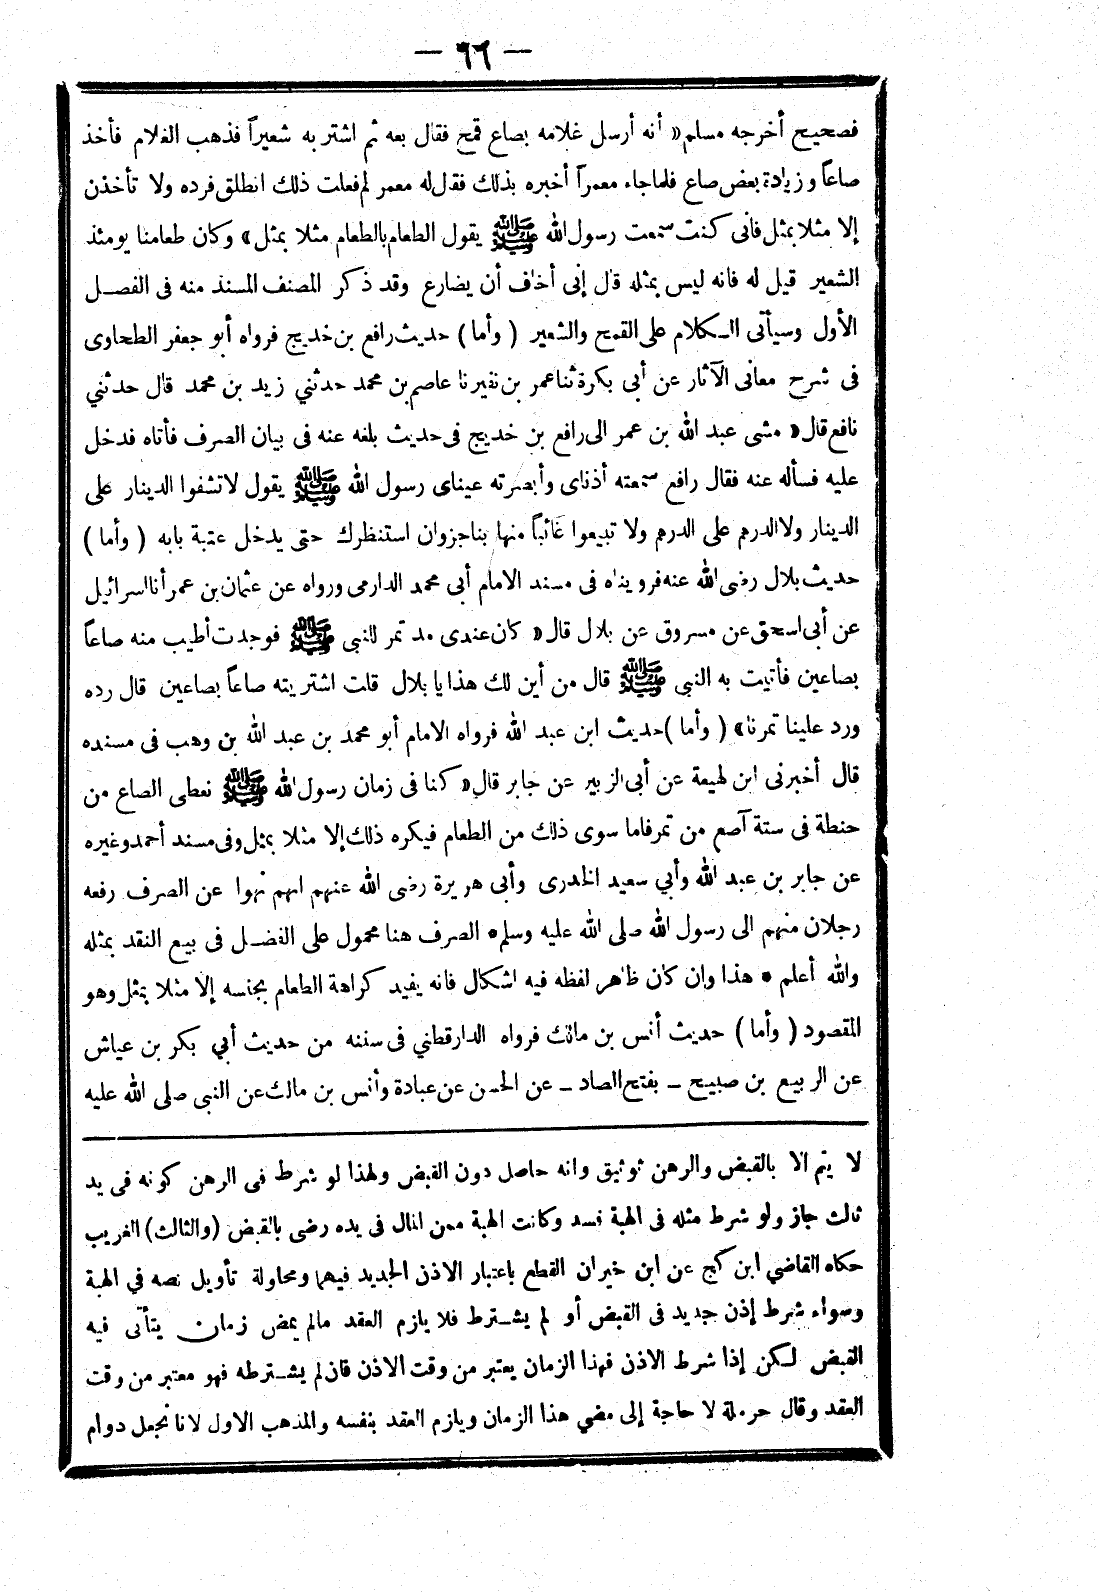 — ٦٦ —
فصحيح أخرجه مسلم « أنه أرسل غلامه بصاع قمح فقال بعه ثم اشتر به شعيراً فذهب الغلام فأخذ
صاعاً وزيادة بعض صاع فلما جاء معمراً أخبره بذلك فقال له معمر لم فعلت ذلك انطلق فرده ولا تأخذن
إلا مثلا بمثل فانى كنت سمعت رسول الله ﷺ يقول الطعام بالطعام مثلا بمثل » وكان طعامنا يومئذ
الشعير قيل له فانه ليس بمثله قال إنى أخاف أن يضارع وقد ذكر المصنف المسند منه فى الفصـل
الأول وسيأتى الـكلام على القمح والشعير ( وأما ) حديث رافع بن خديج فرواه أبو جعفر الطحاوى
فى شرح معانى الآثار عن أبى بكرة ثنا عمر بن نفير نا عاصم بن محمد حدثني زيد بن محمد قال حدثني
نافع قال « مشى عبد الله بن عمر الى رافع بن خديج فى حديث بلغه عنه فى بيان الصرف فأتاه فدخل
عليه فسأله عنه فقال رافع سمعته أذناى وأبصرته عيناى رسول الله ﷺ يقول لا تشفوا الدينار على
الدينار ولا الدرهم على الدرهم ولا تبيعوا غائباً منها بناجز وان استنظرك حتى يدخل عتبة بابه ( وأما )
حديث بلال رضى الله عنه فرويناه فى مسند الامام أبى محمد الدارمى ورواه عن عثمان بن عمر أنا اسرائيل
عن أبى اسحق عن مسروق عن بلال قال « كان عندى مد تمر للنبى ﷺ فوجدت أطيب منه صاعاً
بصاعين فأتيت به النبى ﷺ قال من أين لك هذا يا بلال قلت اشتريته صاعاً بصاعين قال رده
ورد علينا تمرنا » ( وأما ) حديث ابن عبد الله فرواه الامام أبو محمد بن عبد الله بن وهب فى مسنده
قال أخبرنى ابن لهيعة عن أبى الزبير عن جابر قال « كنا فى زمان رسول الله ﷺ نعطى الصاع من
حنطة فى ستة آصع من تمر فاما سوى ذلك من الطعام فيكره ذلك إلا مثلا بمثل وفى مسند أحمد وغيره
عن جابر بن عبد الله وأبي سعيد الخدرى وأبى هريرة رضى الله عنهم انهم نهوا عن الصرف رفعه
رجلان منهم الى رسول الله صلى الله عليه وسلم • الصرف هنا محمول على الفضـل فى بيع النقد بمثله
والله أعلم • هذا وإن كان ظاهر لفظه فيه اشكال فانه يفيد كراهة الطعام بجنسه إلا مثلا بمثل وهو
المقصود ( وأما ) حديث أنس بن مالك فرواه الدارقطني فى سننه من حديث أبي بكر بن عياش
عن الربيع بن صبيح – بفتح الصاد – عن الحسن عن عبادة وأنس بن مالك عن النبى صلى الله عليه
لا يتم الا بالقبض والرهن توثيق وانه حاصل دون القبض ولهذا لو شرط فى الرهن كونه فى يد
ثالث جاز ولو شرط مثله فى الهبة فسد وكانت الهبة ممن المال فى يده رضى بالقبض (والثالث) الغريب
حكاه القاضي ابن كج عن ابن خيران القطع باعتبار الاذن الجديد فيهما ومحاولة تأويل نصه في الهبة
وسواء شرط إذن جديد فى القبض أو لم يشـترط فلا يلزم العقد مالم يمض زمان يتأتى فيه
القبض لـكن إذا شرط الاذن فهذا الزمان يعتبر من وقت الاذن فان لم يشـترطه فهو معتبر من وقت
العقد وقال حرملة لا حاجة إلى مضي هذا الزمان ويلزم العقد بنفسه والمذهب الاول لانا نجعل دوام